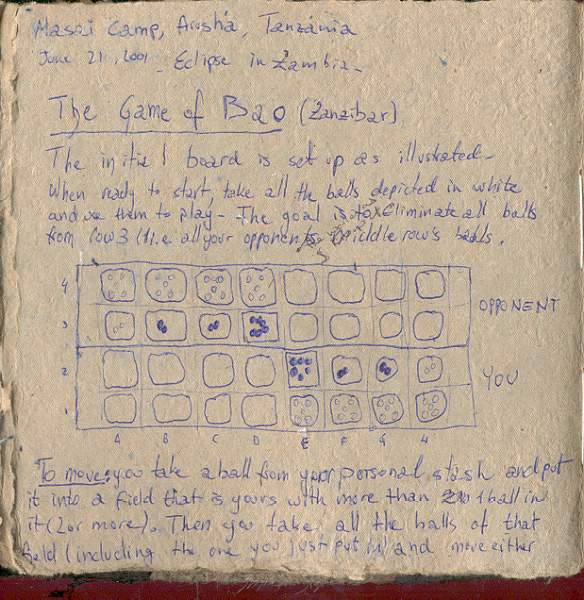 Masai Camp, Arusha, Tanzania
June 21, 2001 - Eclipse in Zambia -
The Game of Bao (Zanzibar)
The initial board is set up as illustrated -
When ready to start, take all the balls depicted in white
and use them to play - The goal is to eliminate all balls
from row 3 (i.e. all your opponents middle row's balls.
4
3 OPPONENT
2 YOU
1
A B C D E F G H
To move: you take a ball from your personal stash and put
it into a field that is yours with more than 1 ball in
it (2 or more). Then you take all the balls of that
field (including the one you just put in) and move either